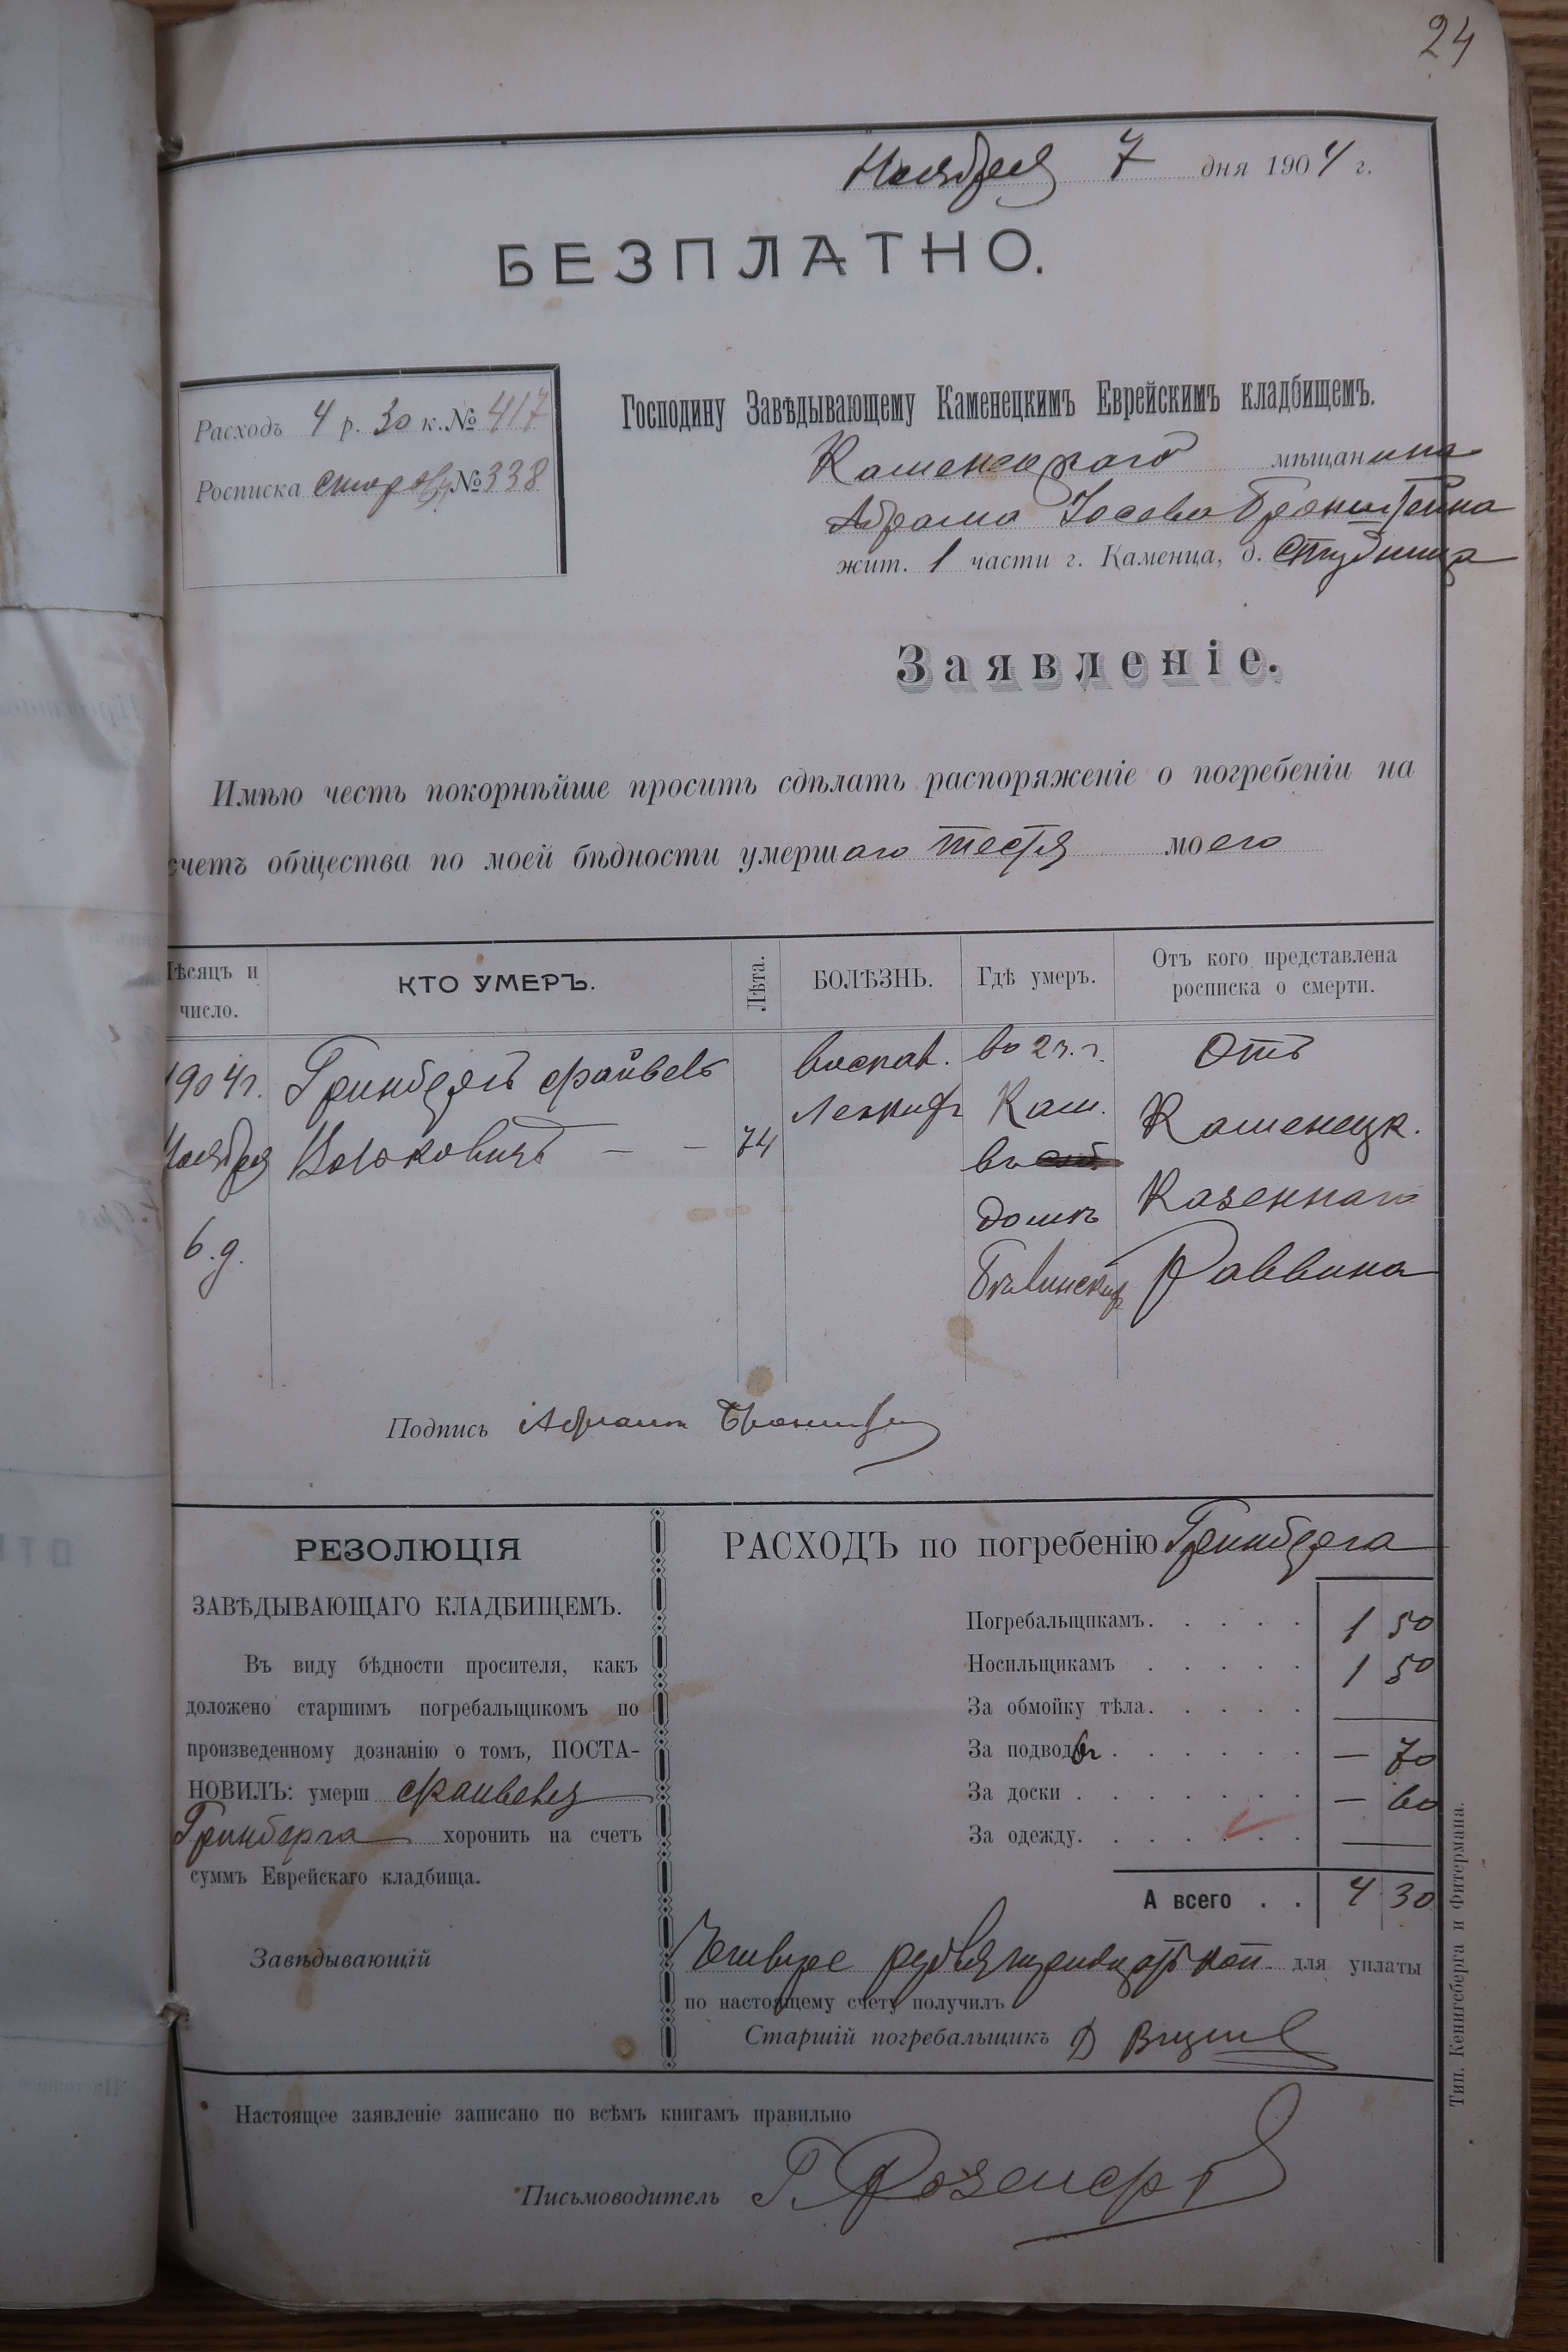 24
Ноября 7 дня 1904 г.
БЕЗПЛАТНО.
Расходъ 4 р. 30 к. № 417
Росписка № 338
Господину Завѣдывающему Каменецкимъ Еврейскимъ кладбищемъ.
Каменецкаго мѣщанина
Абрама Іосева Бронштейна
жит. 1 части г. Каменца, д. Студница
Заявленіе.
Имѣю честь покорнѣйше просить сдѣлать распоряженіе о погребеніи на
счетъ общества по моей бѣдности умершаго тестя моего
Мѣсяцъ и число.
КТО УМЕРЪ.
Лѣта.
БОЛѢЗНЬ.
Гдѣ умеръ.
Отъ кого представлена росписка о смерти.
1904 г.
Ноября
6. д.
Гринбергъ Файвель
74
воспал.
Легкихъ
во 2 ч. г.
Кам.
въ
домѣ
Отъ
Каменецк.
Казеннаго
Раввина
Подпись Абрамъ Бронштейн
РЕЗОЛЮЦІЯ
ЗАВѢДЫВАЮЩАГО КЛАДБИЩЕМЪ.
Въ виду бѣдности просителя, какъ
доложено старшимъ погребальщикомъ по
произведенному дознанію о томъ, ПОСТА-
НОВИЛЪ: умерш Файвеля
Гринберга хоронить на счетъ
суммъ Еврейскаго кладбища.
Завѣдывающій
РАСХОДЪ по погребенію Гринберга
Погребальщикамъ. . . . . 1 50
Носильщикамъ . . . . . 1 50
За обмойку тѣла. . . . . —
За подводы . . . . . . — 70
За доски . . . . . . . — 60
За одежду. . . . . . . —
А всего . . 4 30
Четыре рубля тридцать коп. для уплаты
по настоящему счету получилъ
Старшій погребальщикъ Д
Настоящее заявленіе записано по всѣмъ книгамъ правильно
Письмоводитель Г.
Тип. Кенигсберга и Фитермана.